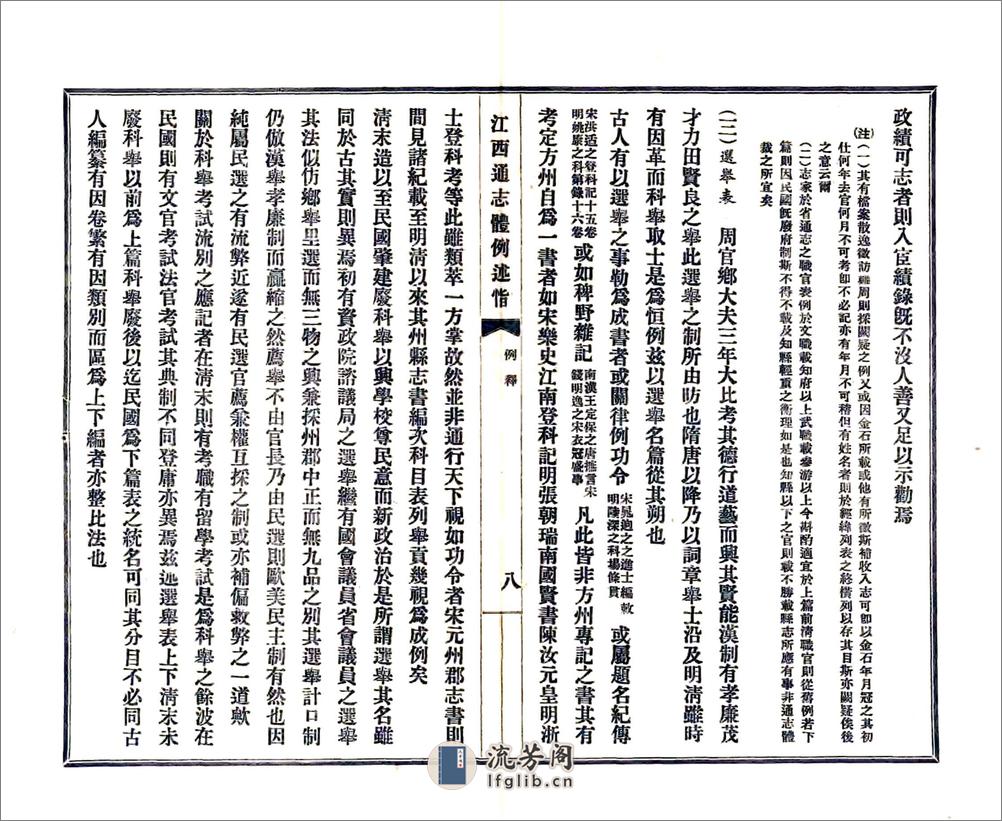 政績可志者則入宦績錄旣不沒人善又足以示勸焉
(注)(一)其有檔案散逸徵訪難周則採闕疑之例又或因金石所載或他有所徵斯補收入志可卽以金石年月冠之其初
仕何年去官何月不可考卽不必記亦有年月不可稽但有姓名者則於經緯列表之終惜列以存其目斯亦闕疑俟後
之意云爾
(二)志家於省通志之職官表例於文職載知府以上武職載參游以上今斟酌適宜於上篇前淸職官則從舊例若下
篇則因民國旣廢府制斯不得不載及知縣輕重之衡理如是也知縣以下之官則載不勝載縣志所應有事非通志體
裁之所宜矣
(三)選舉表 周官鄉大夫三年大比考其德行道藝而興其賢能漢制有孝廉茂
才力田賢良之舉此選舉之制所由昉也隋唐以降乃以詞章舉士沿及明淸雖時
有因革而科舉取士是爲恒例茲以選舉名篇從其朔也
古人有以選舉之事勒爲成書者或關律例功令宋晁逈之之進士編敕明陵深之科場條貫或屬題名紀傳
宋洪适之登科記十五卷明姚康之科第錄十六卷或如稗野雜記南漢王定保之唐摭言宋錢明逸之宋衣冠盛事凡此皆非方州專記之書其有
考定方州自爲一書者如宋樂史江南登科記明張朝瑞南國賢書陳汝元皇明浙
江西通志體例述恉
例釋
八
士登科考等此雖類萃一方掌故然並非通行天下視如功令者宋元州郡志書則
間見諸紀載至明淸以來其州縣志書編次科目表列舉貢幾視爲成例矣
淸末造以至民國肇建廢科舉以興學校尊民意而新政治於是所謂選舉其名雖
同於古其實則異焉初有資政院諮議局之選舉繼有國會議員省會議員之選舉
其法似仿鄉舉里選而無三物之興兼採州郡中正而無九品之別其選舉計口制
仍倣漢舉孝廉制而贏縮之然薦舉不由官長乃由民選則歐美民主制有然也因
純屬民選之有流弊近遂有民選官薦兼權互採之制或亦補偏救弊之一道歟
關於科舉考試流別之應記者在淸末則有考職有留學考試是爲科舉之餘波在
民國則有文官考試法官考試其典制不同登庸亦異焉茲述選舉表上下淸末未
廢科舉以前爲上篇科舉廢後以迄民國爲下篇表之統名可同其分目不必同古
人編纂有因卷繁有因類別而區爲上下編者亦整比法也
流芳阁
lfglib.cn